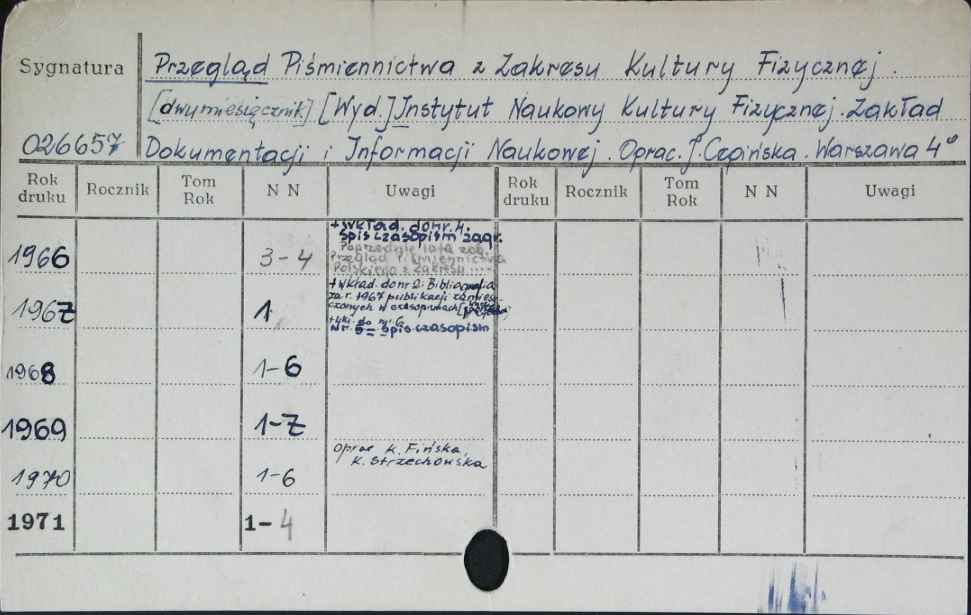 Sygnatura Przegląd Piśmiennictwa z Zakresu Kultury Fizycznej.
[dwumiesięcznik] [Wyd.] Instytut Naukowy Kultury Fizycznej. Zakład
026657 Dokumentacji i Informacji Naukowej. Oprac. J. Cepińska. Warszawa 4°
Rok druku Rocznik Tom Rok N N Uwagi Rok druku Rocznik Tom Rok N N Uwagi
+ wkład. do nr. 4.
spis czasopism zagr.
1966 3-4 Poprzednie lata zob.
Przegląd Piśmiennictwa
Polskiego z Zakresu
+ wkład. do nr 2. Bibliografia
za r. 1967 publikacji zamiesz-
1967 1 czonych w czasopismach
do nr. 6
Nr. 5 = spis czasopism
1968 1-6
1969 1-Z
oprac K. Fińska,
K. Strzechowska
1970 1-6
1971 1-4